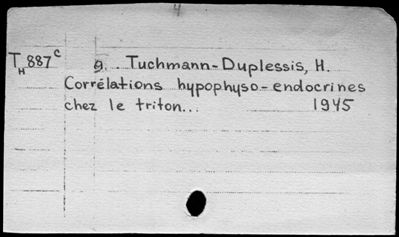 4
T 887 c
H
g. Tuchmann-Duplessis, H.
Corrélations hypophyso-endocrines
chez le triton... 1945